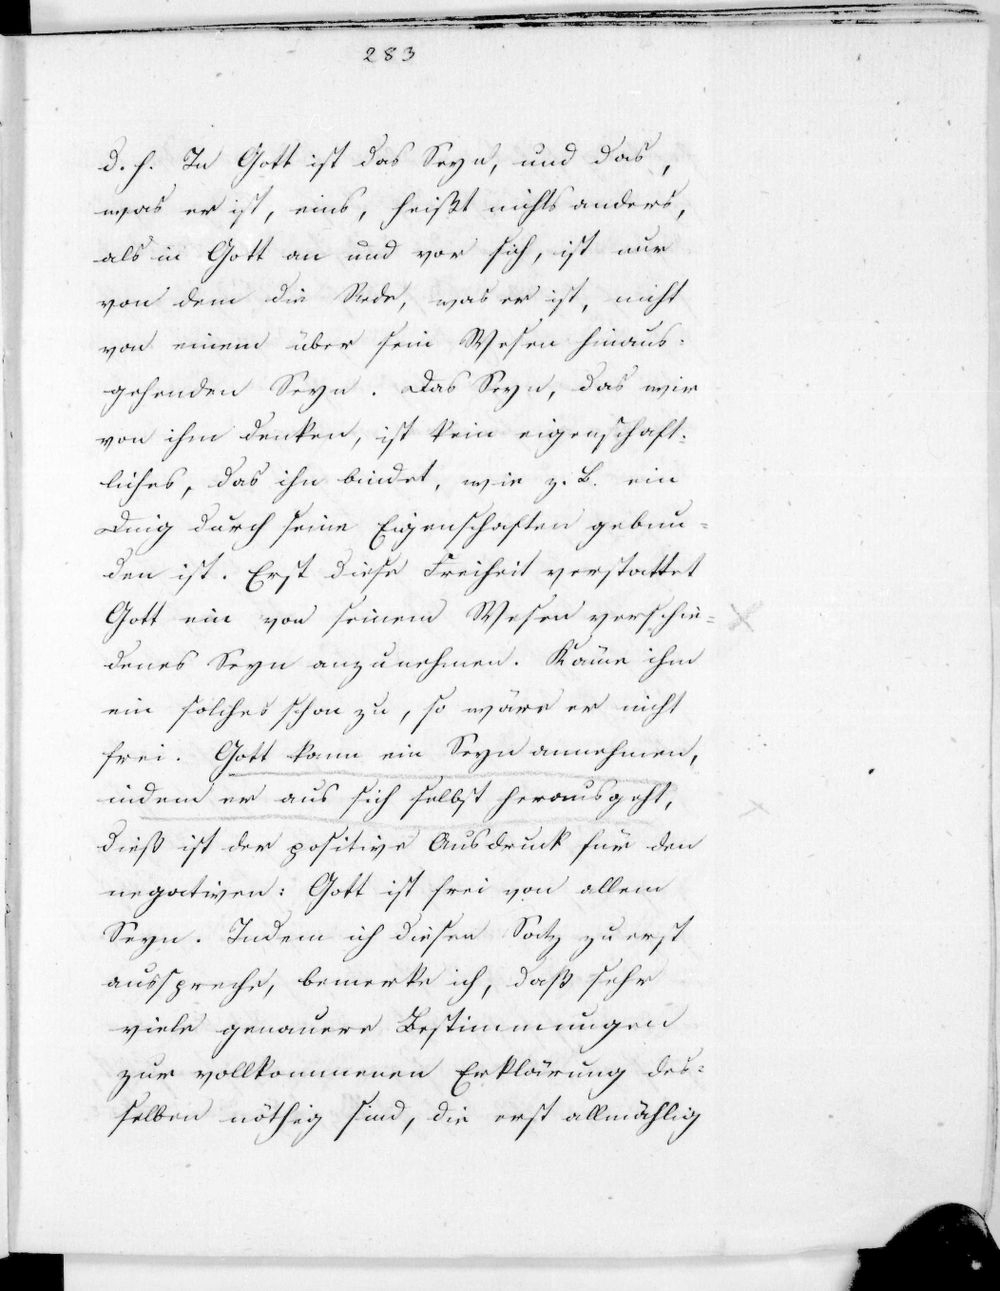 283
d. h. In Gott ist das Seyn, und das,
was er ist, eins, heißt nichts anders,
als in Gott an und vor sich, ist nur
von dem die Rede, was er ist, nicht
von einem über sein Wesen hinaus-
gehenden Seyn. Das Seyn, das wir
von ihm denken, ist kein eigenschaft-
liches, das ihn bindet, wie z. B. ein
Ding durch seine Eigenschaften gebun-
den ist. Erst diese Freiheit verstattet
Gott ein von seinem Wesen verschie-
denes Seyn anzunehmen. Käme ihm
ein solches schon zu, so wäre er nicht
frei. Gott kann ein Seyn annehmen,
indem er aus sich selbst herausgeht,
dieß ist der positive Ausdruck für den
negativen: Gott ist frei von allem
Seyn. Indem ich diesen Satz zu erst
ausspreche, bemerke ich, daß sehr
viele genauere Bestimmungen
zur vollkommenen Erklärung des-
selben nöthig sind, die erst allmählig